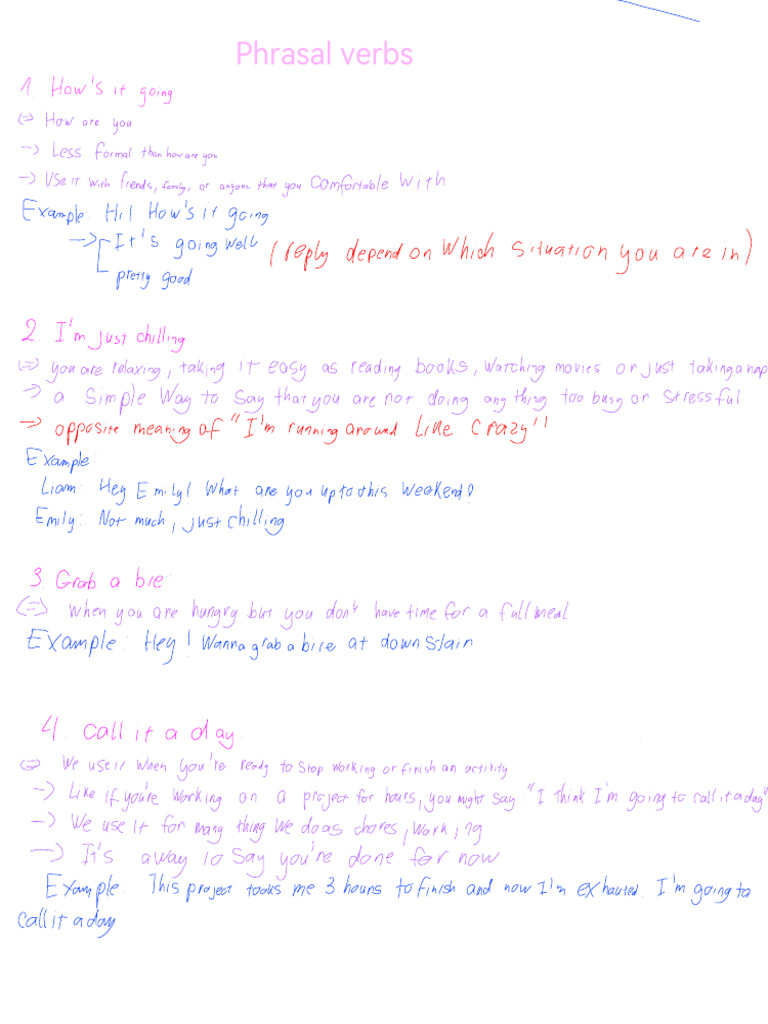 Phrasal verbs
1. How's it going
(=) How are you
-> Less formal than how are you
-> Use it with friends, family, or anyone that you comfortable with
Example Hi! How's it going
-> It's going well (reply depend on which situation you are in)
pretty good
2. I'm just chilling
(=) you are relaxing, taking it easy as reading books, watching movies or just taking a nap
-> a simple way to say that you are not doing any thing too busy or stressful
-> opposite meaning of "I'm running around like crazy"
Example
Liam: Hey Emily! What are you up to this weekend?
Emily: Not much, just chilling
3. Grab a bie:
(=) when you are hungry but you don't have time for a full meal
Example: Hey! Wanna grab a bite at down stair
4. call it a day
(=) We use it when you're ready to stop working or finish an activity
-> Like if you're working on a project for hours, you might say "I think I'm going to call it a day"
-> We use it for many thing we do as chores, work,
-> It's a way to say you're done for now
Example: This project tooks me 3 hours to finish and now I'm exhauted. I'm going to
call it a day